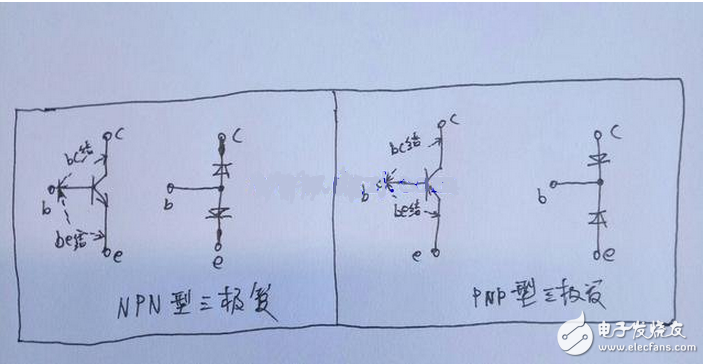 c
bc结
b
be结
e
c
b
e
NPN型三极管
c
bc结
b
be结
e
c
b
e
PNP型三极管
电子发烧友
www.elecfans.com